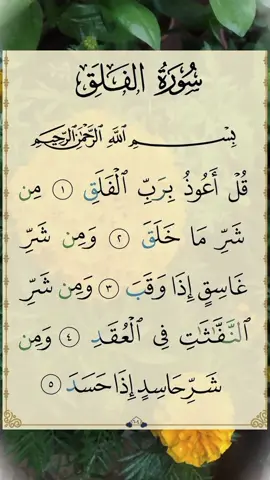 سُورَةُ الفَلَقِ
بِسْمِ اللَّهِ الرَّحْمَٰنِ الرَّحِيمِ
قُلْ أَعُوذُ بِرَبِّ ٱلْفَلَقِ ١ مِن
شَرِّ مَا خَلَقَ ٢ وَمِن شَرِّ
غَاسِقٍ إِذَا وَقَبَ ٣ وَمِن شَرِّ
ٱلنَّفَّٰثَٰتِ فِى ٱلْعُقَدِ ٤ وَمِن
شَرِّ حَاسِدٍ إِذَا حَسَدَ ٥